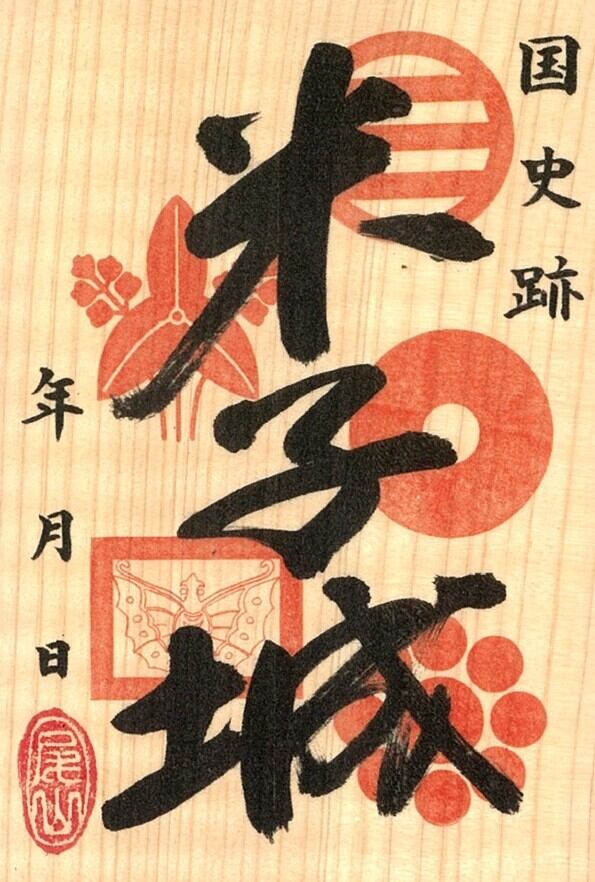 国史跡
米子城
年月日
尾山